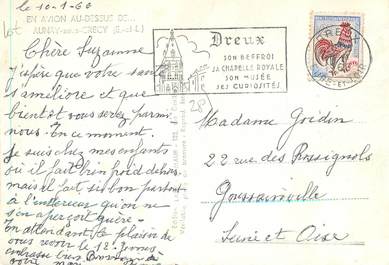 le 10-1-66
EN AVION AU-DESSUS DE...
AUNAY-sous-CRECY (E.-et-L.)
lot
Chère Suzanne
J'espère que votre santé
s'améliore et que
bientôt vous serez parmi
nous. En ce moment.
Je suis chez mes enfants
où il fait bien froid dehors
mais il fait si bon partout
à l'intérieur qu'on ne
s'en aperçoit guère.
En attendant le plaisir de
vous revoir le 12. Je vous
embrasse bien
Dreux
SON BEFFROI
SA CHAPELLE ROYALE
SON MUSÉE
SES CURIOSITÉS
2P
DREUX
EURE-ET-LOIR
Madame Goidin
22 rue des Rossignols
Goussainville
Seine et Oise